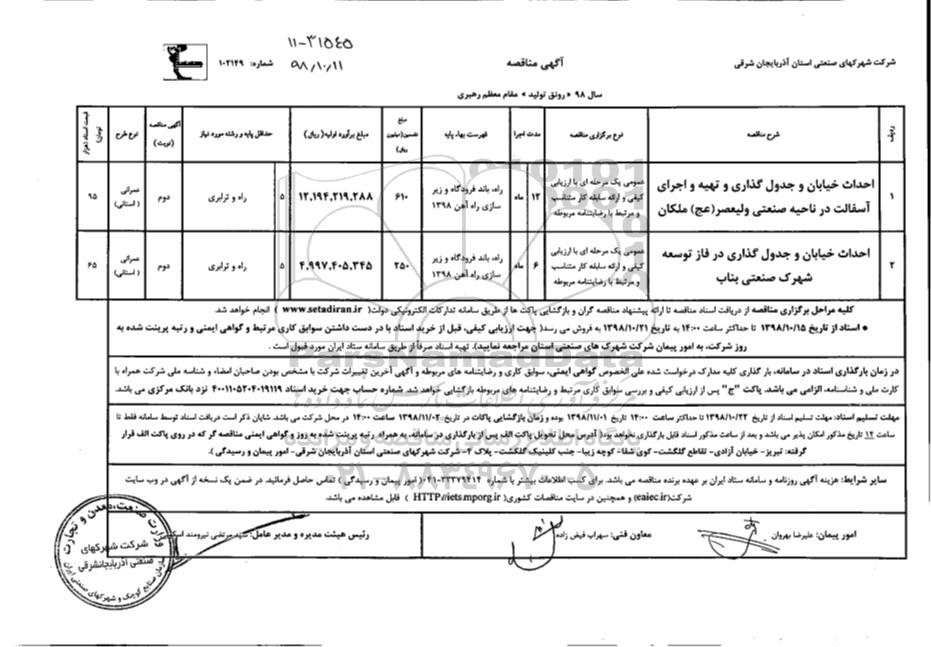 ۱۱-۳۱۵۴۵
۹۸/۱۰/۱۱
شرکت شهرکهای صنعتی استان آذربایجان شرقی
آگهی مناقصه
شماره: ۱۰۲۱۴۹
سال ۹۸ « رونق تولید » مقام معظم رهبری
ردیف | شرح مناقصه | نوع برگزاری مناقصه | مدت اجرا | فهرست بهاء پایه | مبلغ تضمین (میلیون ریال) | مبلغ برآورد اولیه (ریال) | حداقل پایه و رشته مورد نیاز | آگهی مناقصه (نوبت) | نوع طرح | قیمت اسناد (هزار تومان)
۱ | احداث خیابان و جدول گذاری و تهیه و اجرای آسفالت در ناحیه صنعتی ولیعصر(عج) ملکان | عمومی یک مرحله ای با ارزیابی کیفی و ارائه سابقه کار متناسب و مرتبط با رضایتنامه مربوطه | ۱۲ ماه | راه، باند فرودگاه و زیر سازی راه آهن ۱۳۹۸ | ۶۱۰ | ۱۲,۱۹۴,۲۱۹,۲۸۸ | ۵ راه و ترابری | دوم | عمرانی (استانی) | ۹۵
۲ | احداث خیابان و جدول گذاری در فاز توسعه شهرک صنعتی بناب | عمومی یک مرحله ای با ارزیابی کیفی و ارائه سابقه کار متناسب و مرتبط با رضایتنامه مربوطه | ۶ ماه | راه، باند فرودگاه و زیر سازی راه آهن ۱۳۹۸ | ۲۵۰ | ۴,۹۹۷,۴۰۵,۳۴۵ | ۵ راه و ترابری | دوم | عمرانی (استانی) | ۶۵
کلیه مراحل برگزاری مناقصه از دریافت اسناد مناقصه تا ارائه پیشنهاد مناقصه گران و بازگشایی پاکت ها از طریق سامانه تدارکات الکترونیکی دولت( www.setadiran.ir ) انجام خواهد شد.
● اسناد از تاریخ ۱۳۹۸/۱۰/۱۵ تا حداکثر ساعت ۱۴:۰۰ به تاریخ ۱۳۹۸/۱۰/۲۱ به فروش می رسد( جهت ارزیابی کیفی، قبل از خرید اسناد با در دست داشتن سوابق کاری مرتبط و گواهی ایمنی و رتبه پرینت شده به
روز شرکت، به امور پیمان شرکت شهرک های صنعتی استان مراجعه نمایید). تهیه اسناد صرفاً از طریق سامانه ستاد ایران مورد قبول است .
در زمان بارگذاری اسناد در سامانه، بار گذاری کلیه مدارک درخواست شده علی الخصوص گواهی ایمنی، سوابق کاری و رضایتنامه های مربوطه و آگهی آخرین تغییرات شرکت با مشخص بودن صاحبان امضاء و شناسه ملی شرکت همراه با
کارت ملی و شناسنامه، الزامی می باشد. پاکت "ج" پس از ارزیابی کیفی و بررسی سوابق کاری مرتبط و رضایتنامه های مربوطه بازگشایی خواهد شد. شماره حساب جهت خرید اسناد ۴۰۰۱۱۰۵۲۰۴۰۱۹۱۱۹ نزد بانک مرکزی می باشد.
مهلت تسلیم اسناد: مهلت تسلیم اسناد از تاریخ ۱۳۹۸/۱۰/۲۲ تا حداکثر ساعت ۱۴:۰۰ تاریخ ۱۳۹۸/۱۱/۰۱ بوده و زمان بازگشایی پاکات در تاریخ ۱۳۹۸/۱۱/۰۲ ساعت ۱۴:۰۰ در محل شرکت می باشد. شایان ذکر است دریافت اسناد توسط سامانه فقط تا
ساعت ۱۴ تاریخ مذکور امکان پذیر می باشد و بعد از ساعت مذکور اسناد قابل بارگذاری نخواهد بود( آدرس محل تحویل پاکت الف پس از بارگذاری در سامانه، به همراه رتبه پرینت شده به روز و گواهی ایمنی مناقصه گر که در روی پاکت الف قرار
گرفته: تبریز- خیابان آزادی- تقاطع گلگشت- کوی شفا- کوچه زیبا- جنب کلینیک گلگشت- پلاک ۴- شرکت شهرکهای صنعتی استان آذربایجان شرقی- امور پیمان و رسیدگی ).
سایر شرایط: هزینه آگهی روزنامه و سامانه ستاد ایران بر عهده برنده مناقصه می باشد. برای کسب اطلاعات بیشتر با شماره ۳۳۳۷۹۴۱۴-۰۴۱( امور پیمان و رسیدگی ) تماس حاصل فرمائید. در ضمن یک نسخه از آگهی در وب سایت
شرکت(eaiec.ir) و همچنین در سایت مناقصات کشوری( HTTP//iets.mporg.ir ) قابل مشاهده می باشد.
امور پیمان: علیرضا بهروان
معاون فنی: سهراب فیض زاده
رئیس هیئت مدیره و مدیر عامل: سید مرتضی نیرومند
وزارت صنعت، معدن و تجارت
شرکت شهرکهای
صنعتی آذربایجانشرقی
سازمان صنایع کوچک و شهرکهای صنعتی ایران
ParsNamadData
۰۲۱-۸۸۳۴۹۶۷۰-۵